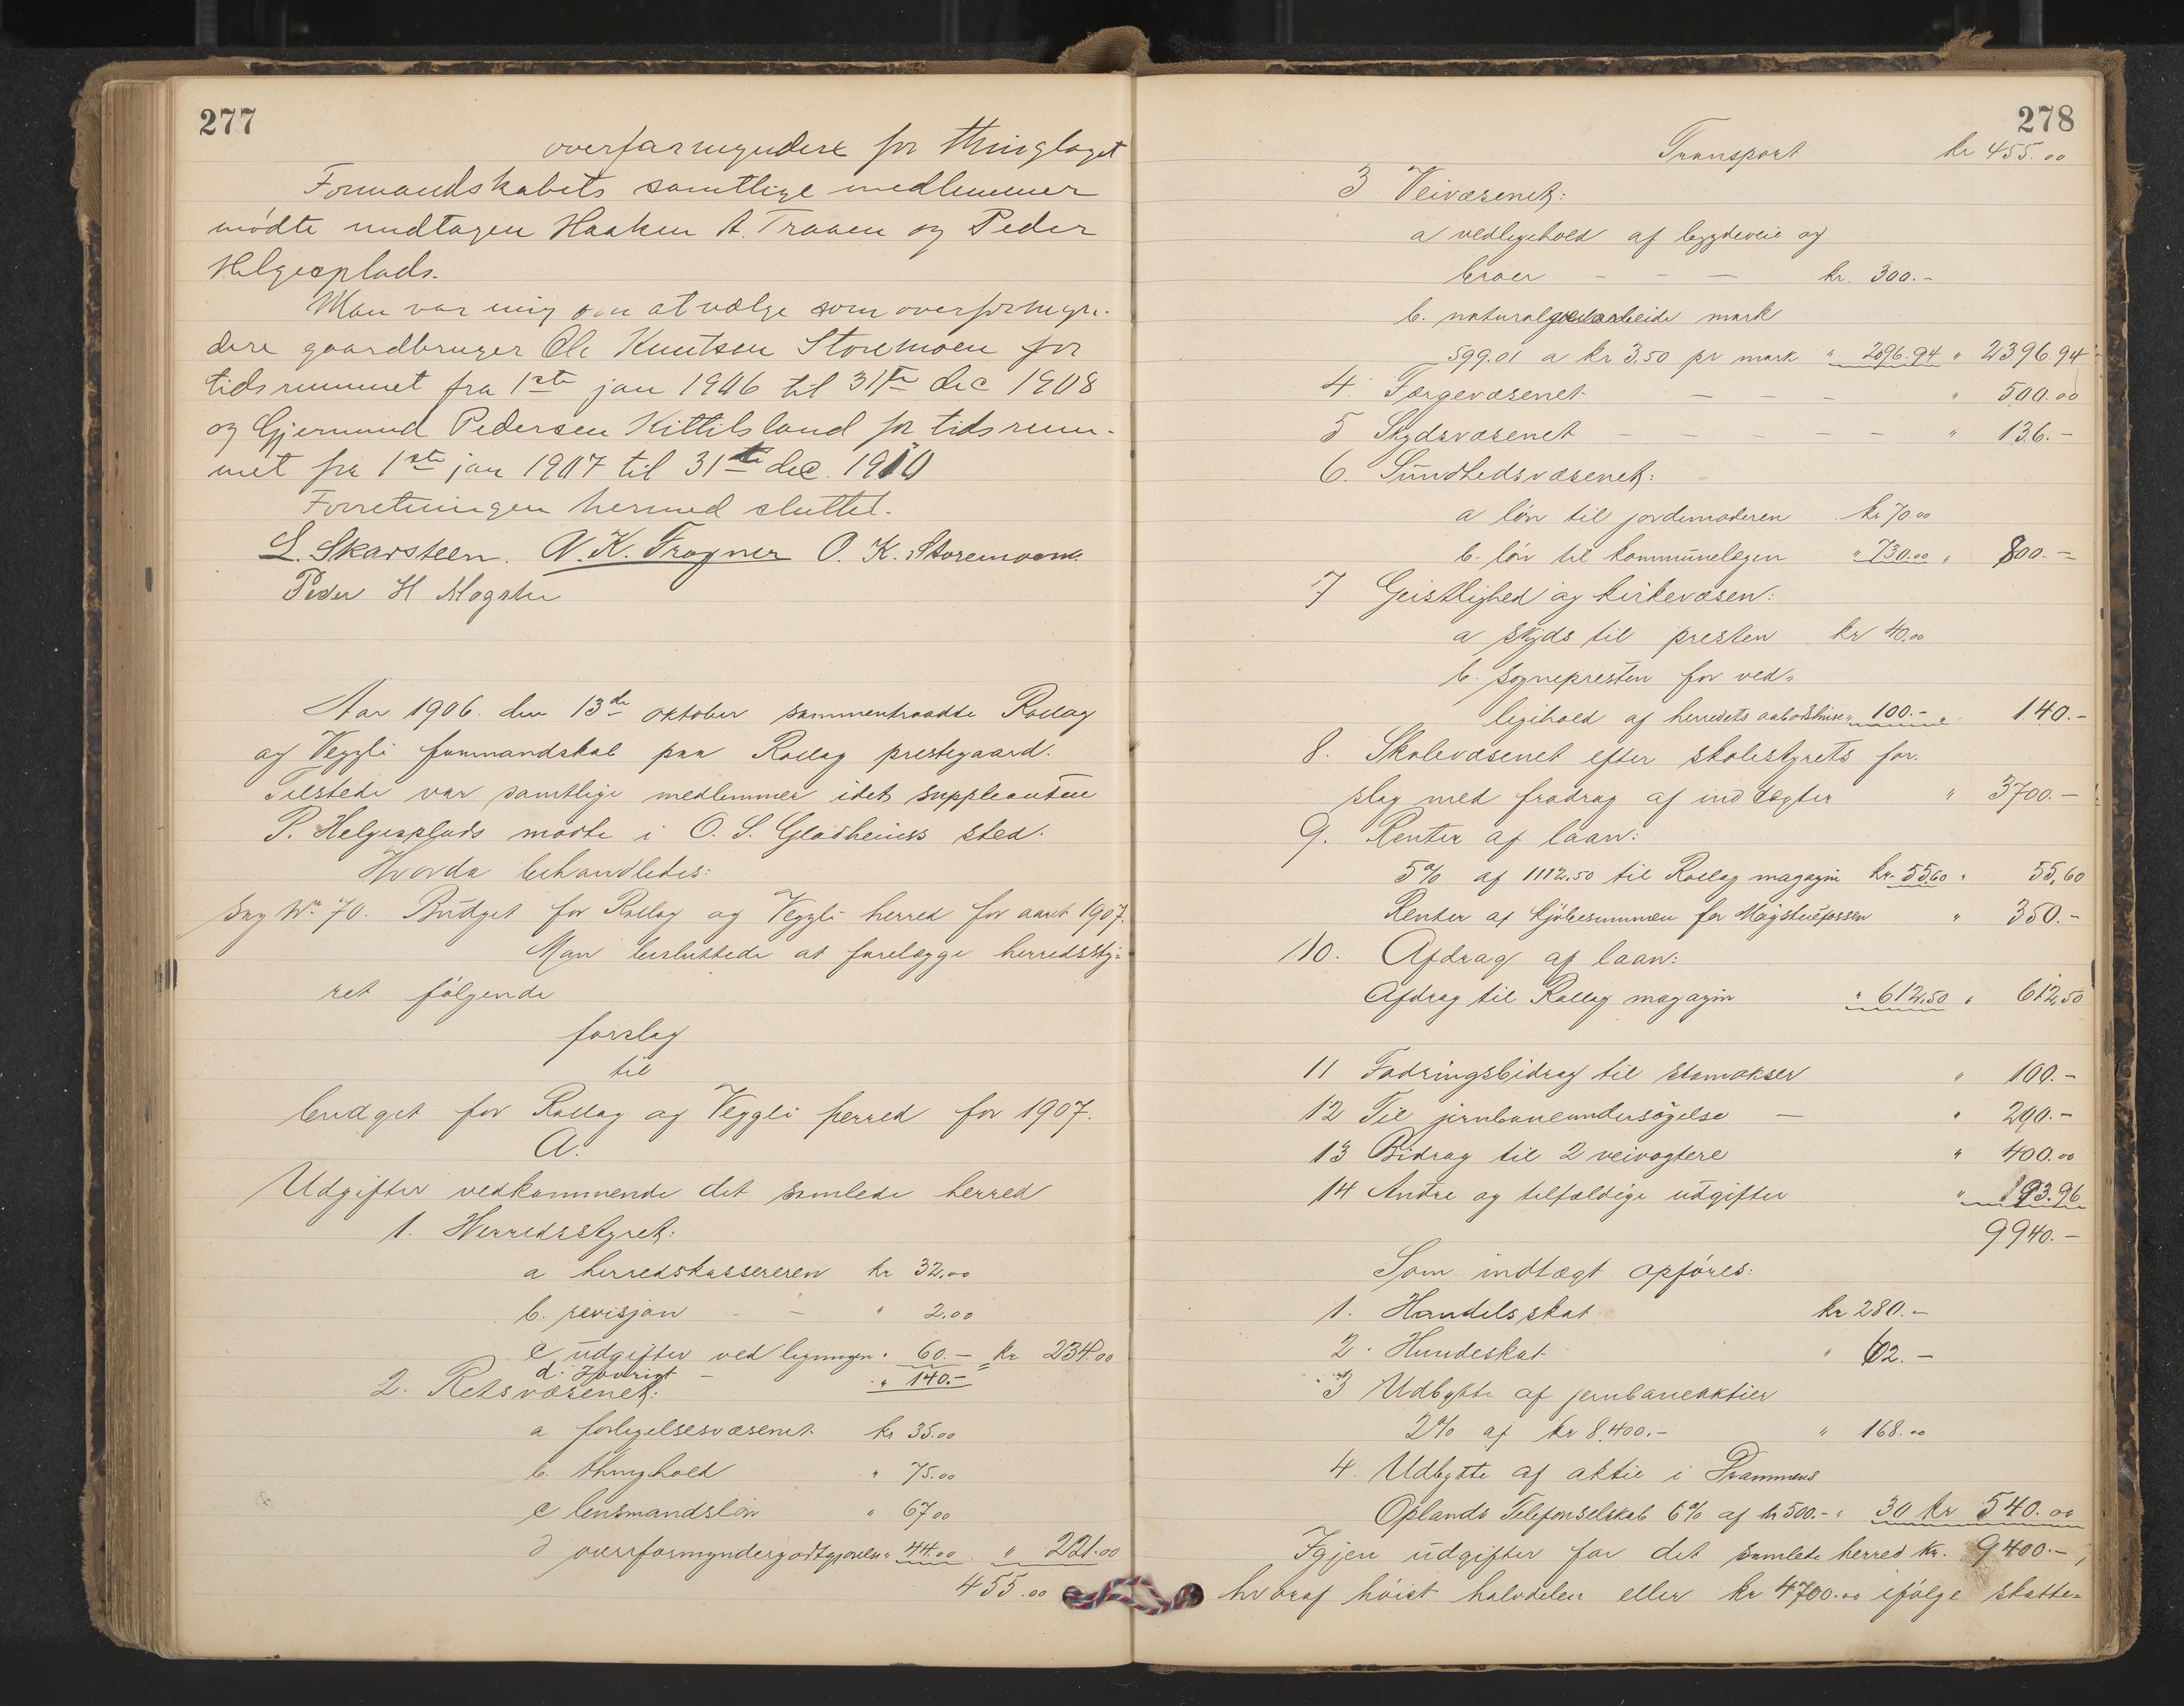 277
overformyndere for thinglaget
Formandskabets samtlige medlemmer
mødte undtagen Haaken A. Traaen og Peder
Helgesplads.
Man var enig om at vælge som overformyn-
dere gaardbruger Ole Knutsen Storemoen for
tidsrummet fra 1ste jan 1906 til 31te dec 1908
og Gjermund Pedersen Kittilsland for tidsrum-
met fra 1ste jan 1907 til 31te dec. 1910
Forretningen hermed sluttet.
S. Skarsteen. N. K. Frogner O. K. Storemoen.
Peder H Mogstu
Aar 1906. den 13de oktober sammentraadte Rollag
og Veggli formandskab paa Rollag prestegaard.
Tilstede var samtlige medlemmer idet suppleanten
P. Helgesplads mødte i O. S. Gladheims sted.
Hvorda behandledes:
Sag No. 70. Budget for Rollag og Veggli herred for aaret 1907.
Man besluttede at forelægge herredssty-
ret følgende
forslag
til
budget for Rollag og Veggli herred for 1907.
A.
Udgifter vedkommende det samlede herred
1. Herredsstyret:
a herredskassereren kr 32.00
b. revisjon - - " 2.00
c udgifter ved ligningen " 60.- = kr 234.00
d. Forøvrigt - " 140.-
2. Retsvæsenet:
a forligelsesvæsenet kr 35.00
b. thinghold " 75.00
c lensmandsløn " 67 00
d overformyndergodtgjørelse " 44.00 " 221.00
455.00
278
Transport kr 455.00
3 Veivæsenet:
a vedligehold af bygdeveie og
broer - - - kr. 300.-
b. naturalveiarbeide mark
599.01 a kr 3.50 pr mark " 2096.94 " 2396.94
4. Færgevæsenet - - - " 500.00
5 Skydsvæsenet - - - - - " 136.-
6. Sundhedsvæsenet:
a løn til jordemoderen kr 70.00
b. løn til kommunelægen " 730.00 " 800.-
7 Geistlighed og kirkevæsen:
a skyds til presten kr 40.00
b. sognepresten for ved-
ligehold af herredets aabodshuse " 100.- " 140.-
8. Skolevæsenet efter skolestyrets for-
slag med fradrag af indtægter " 3700.-
9. Renter af laan:
5% af 1112.50 til Rollag magazin kr. 55.60 " 55,60
Renter af kjøbesummen for Mogstufossen " 350.-
10. Afdrag af laan:
Afdrag til Rollag magazin " 612.50 " 612,50
11 Fodringsbidrag til stamokser " 100.-
12 Til jernbaneundersøgelse - " 200.-
13 Bidrag til 2 veivogtere " 400.00
14 Andre og tilfældige udgifter " 93.96
9940.-
Som indtægt opføres:
1. Handelsskat kr 280.-
2. Hundeskat " 62.-
3 Udbytte af jernbaneaktier
2% af kr 8.400.- " 168.00
4. Udbytte af aktie i Drammens
Oplands Telefonselskab 6% af kr 500.- " 30 kr 540.00
Igjen udgifter for det samlete herred kr. 9400.-,
hvoraf høist halvdelen eller kr 4700.00 ifølge skatte-